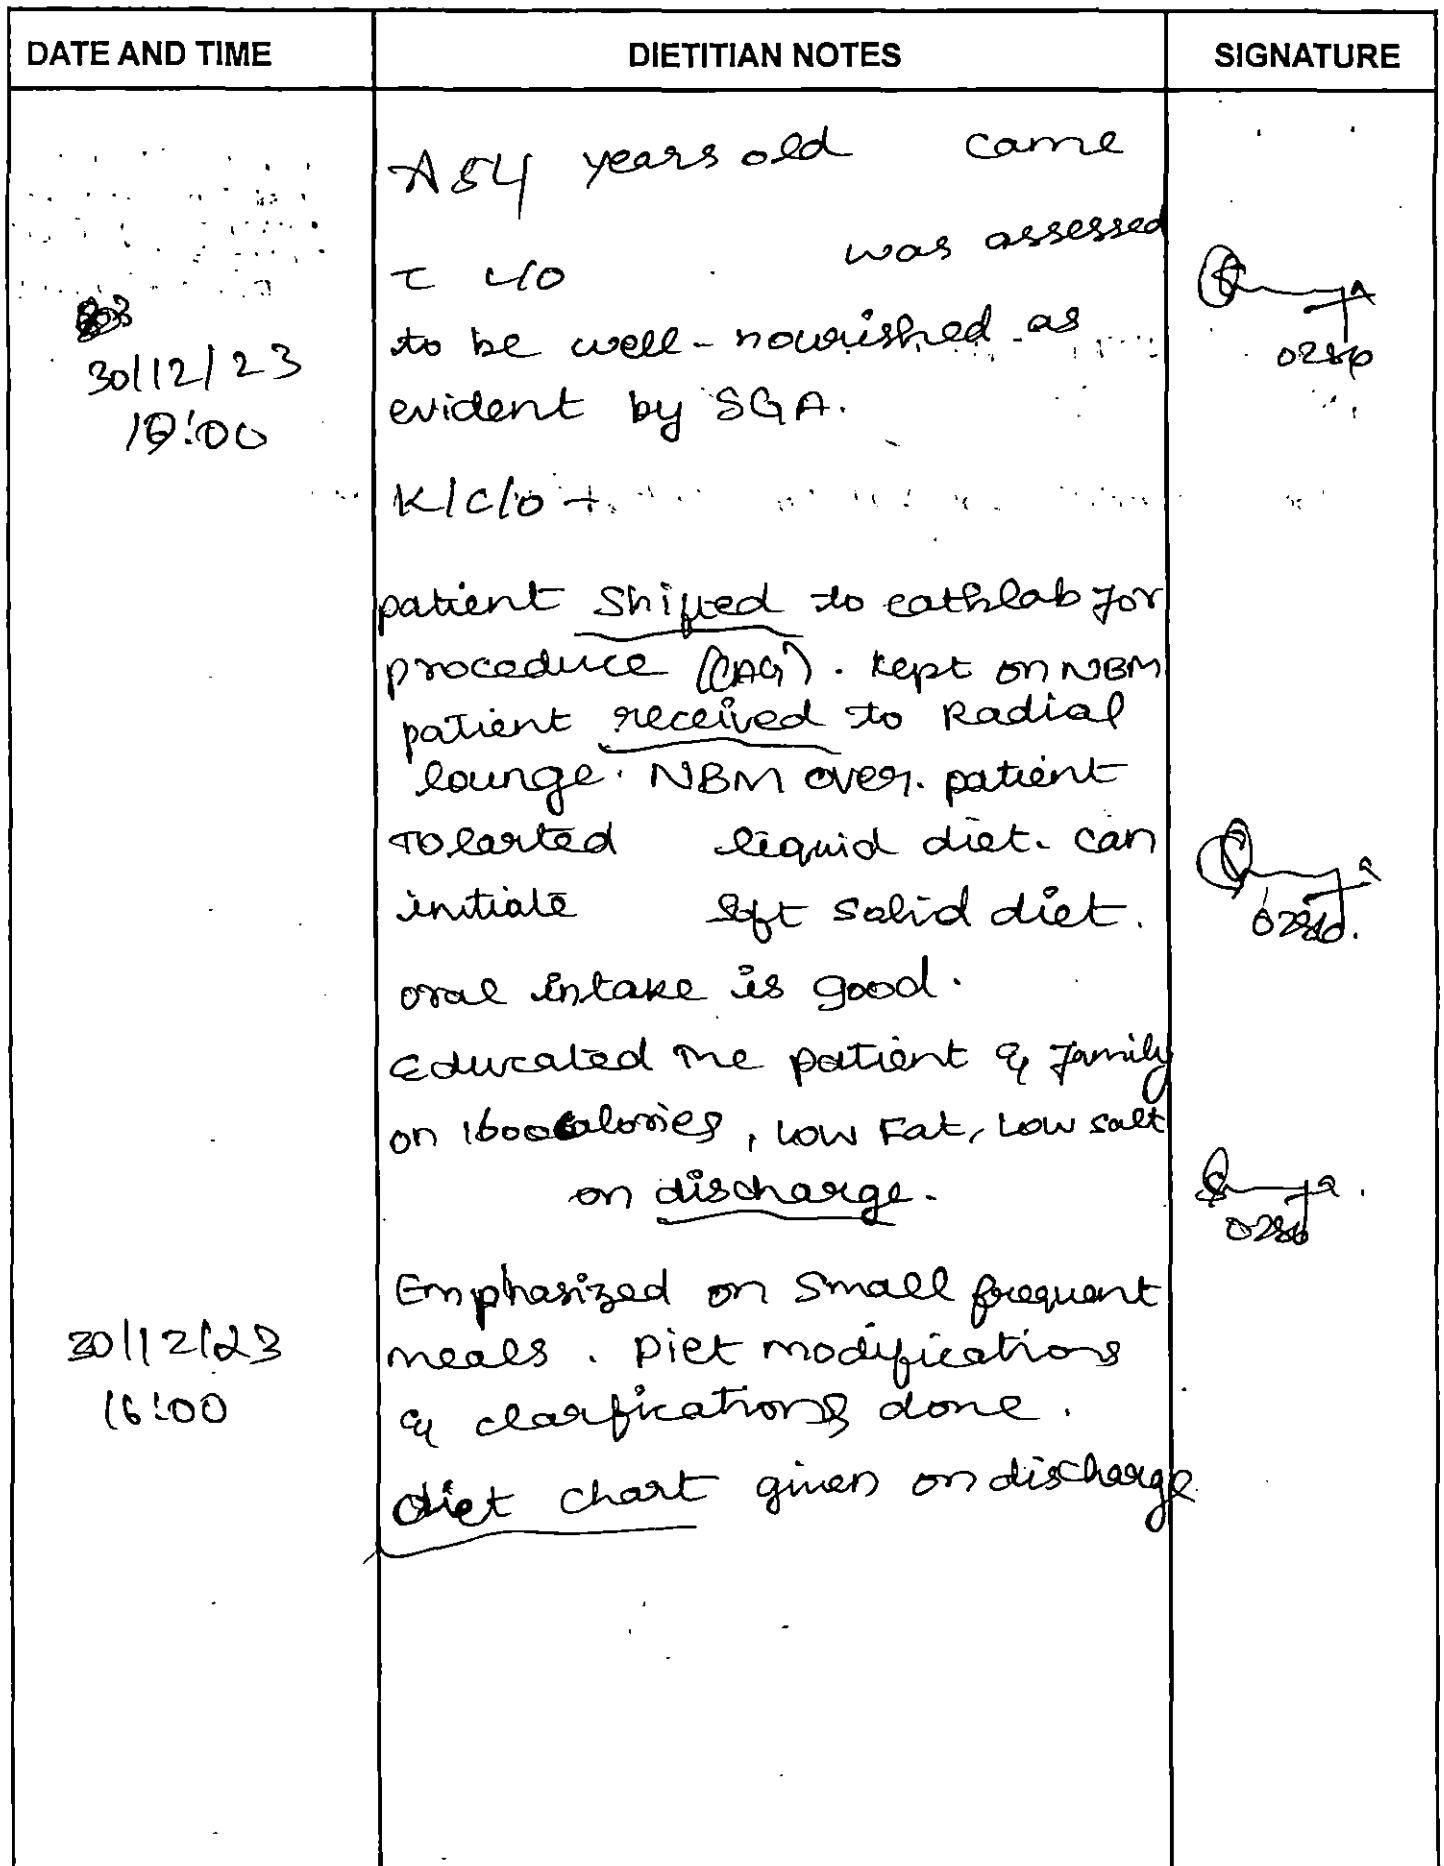 DATE AND TIME DIETITIAN NOTES SIGNATURE
A 54 years old came
c̄ c/o was assessed
to be well-nourished as
30/12/23
evident by SGA.
K/C/O
patient Shifted to cathlab for
proceduce (CAG). kept on NBM
patient received to Radial
lounge. NBM over. patient
Tolarted liquid diet. can
initiate soft solid diet.
oral intake is good.
Educated the patient & family
on 1600 calories, Low Fat, Low salt
on discharge.
Emphasized on Small frequent
30/12/23 meals. Diet modifications
16:00 & clarfications done.
diet chart given on discharge